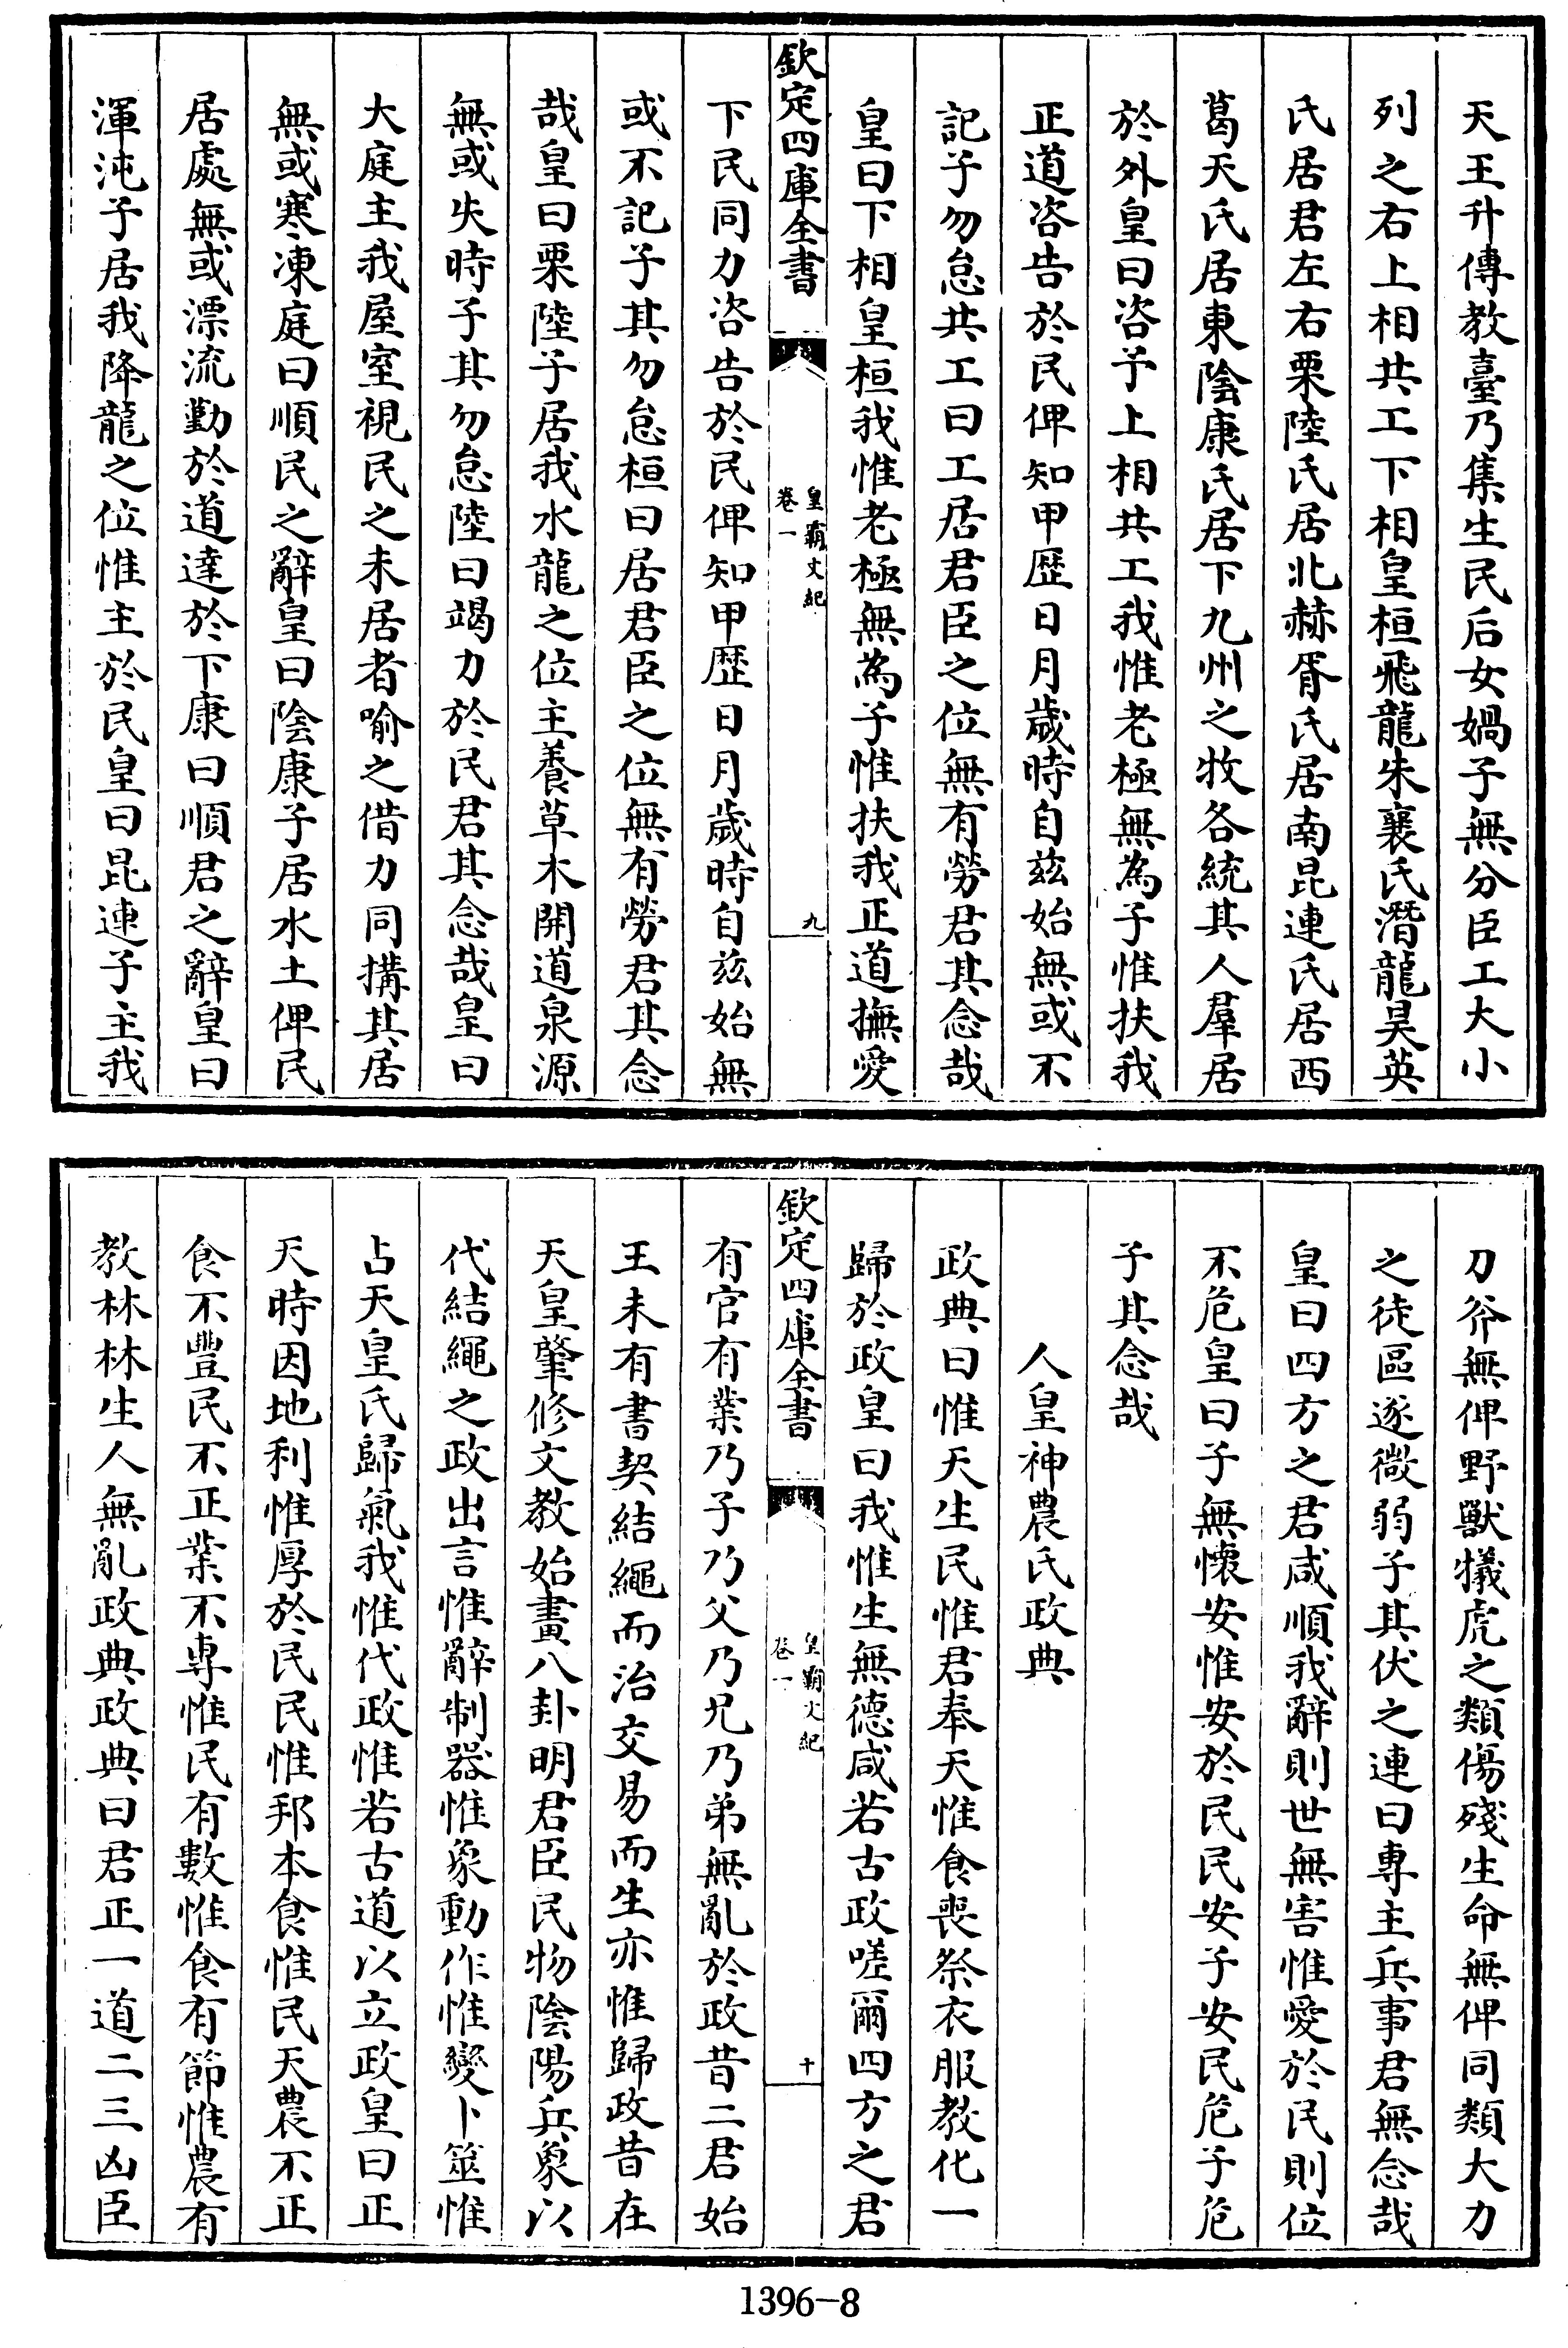 天王升傳教臺乃集生民后女媧子無分臣工大小
列之右上相共工下相皇桓飛龍朱襄氏潛龍昊英
氏居君左右栗陸氏居北赫胥氏居南昆連氏居西
葛天氏居東陰康氏居下九州之牧各統其人羣居
於外皇曰咨予上相共工我惟老極無為子惟扶我
正道咨告於民俾知甲歴日月歲時自兹始無或不
記子勿怠共工曰工居君臣之位無有勞君其念哉
皇曰下相皇桓我惟老極無為子惟扶我正道撫愛
欽定四庫全書
皇霸文紀
卷一
九
下民同力咨告於民俾知甲歴日月歲時自兹始無
或不記子其勿怠桓曰居君臣之位無有勞君其念
哉皇曰栗陸子居我水龍之位主養草木開道泉源
無或失時子其勿怠陸曰竭力於民君其念哉皇曰
大庭主我屋室視民之未居者喻之借力同搆其居
無或寒凍庭曰順民之辭皇曰陰康子居水土俾民
居處無或漂流勤於道達於下康曰順君之辭皇曰
渾沌子居我降龍之位惟主於民皇曰昆連子主我
刀斧無俾野獸犧虎之類傷殘生命無俾同類大力
之徒區逐微弱子其伏之連曰專主兵事君無念哉
皇曰四方之君咸順我辭則世無害惟愛於民則位
不危皇曰子無懷安惟安於民民安子安民危子危
子其念哉
人皇神農氏政典
政典曰惟天生民惟君奉天惟食喪祭衣服教化一
歸於政皇曰我惟生無德咸若古政嗟爾四方之君
欽定四庫全書
皇霸文紀
卷一
十
有官有業乃子乃父乃兄乃弟無亂於政昔二君始
王未有書契結繩而治交易而生亦惟歸政昔在
天皇肇修文教始畫八卦明君臣民物陰陽兵象以
代結繩之政出言惟辭制器惟象動作惟變卜筮惟
占天皇氏歸氣我惟代政惟若古道以立政皇曰正
天時因地利惟厚於民民惟邦本食惟民天農不正
食不豐民不正業不專惟民有數惟食有節惟農有
教林林生人無亂政典政典曰君正一道二三凶臣
1396-8